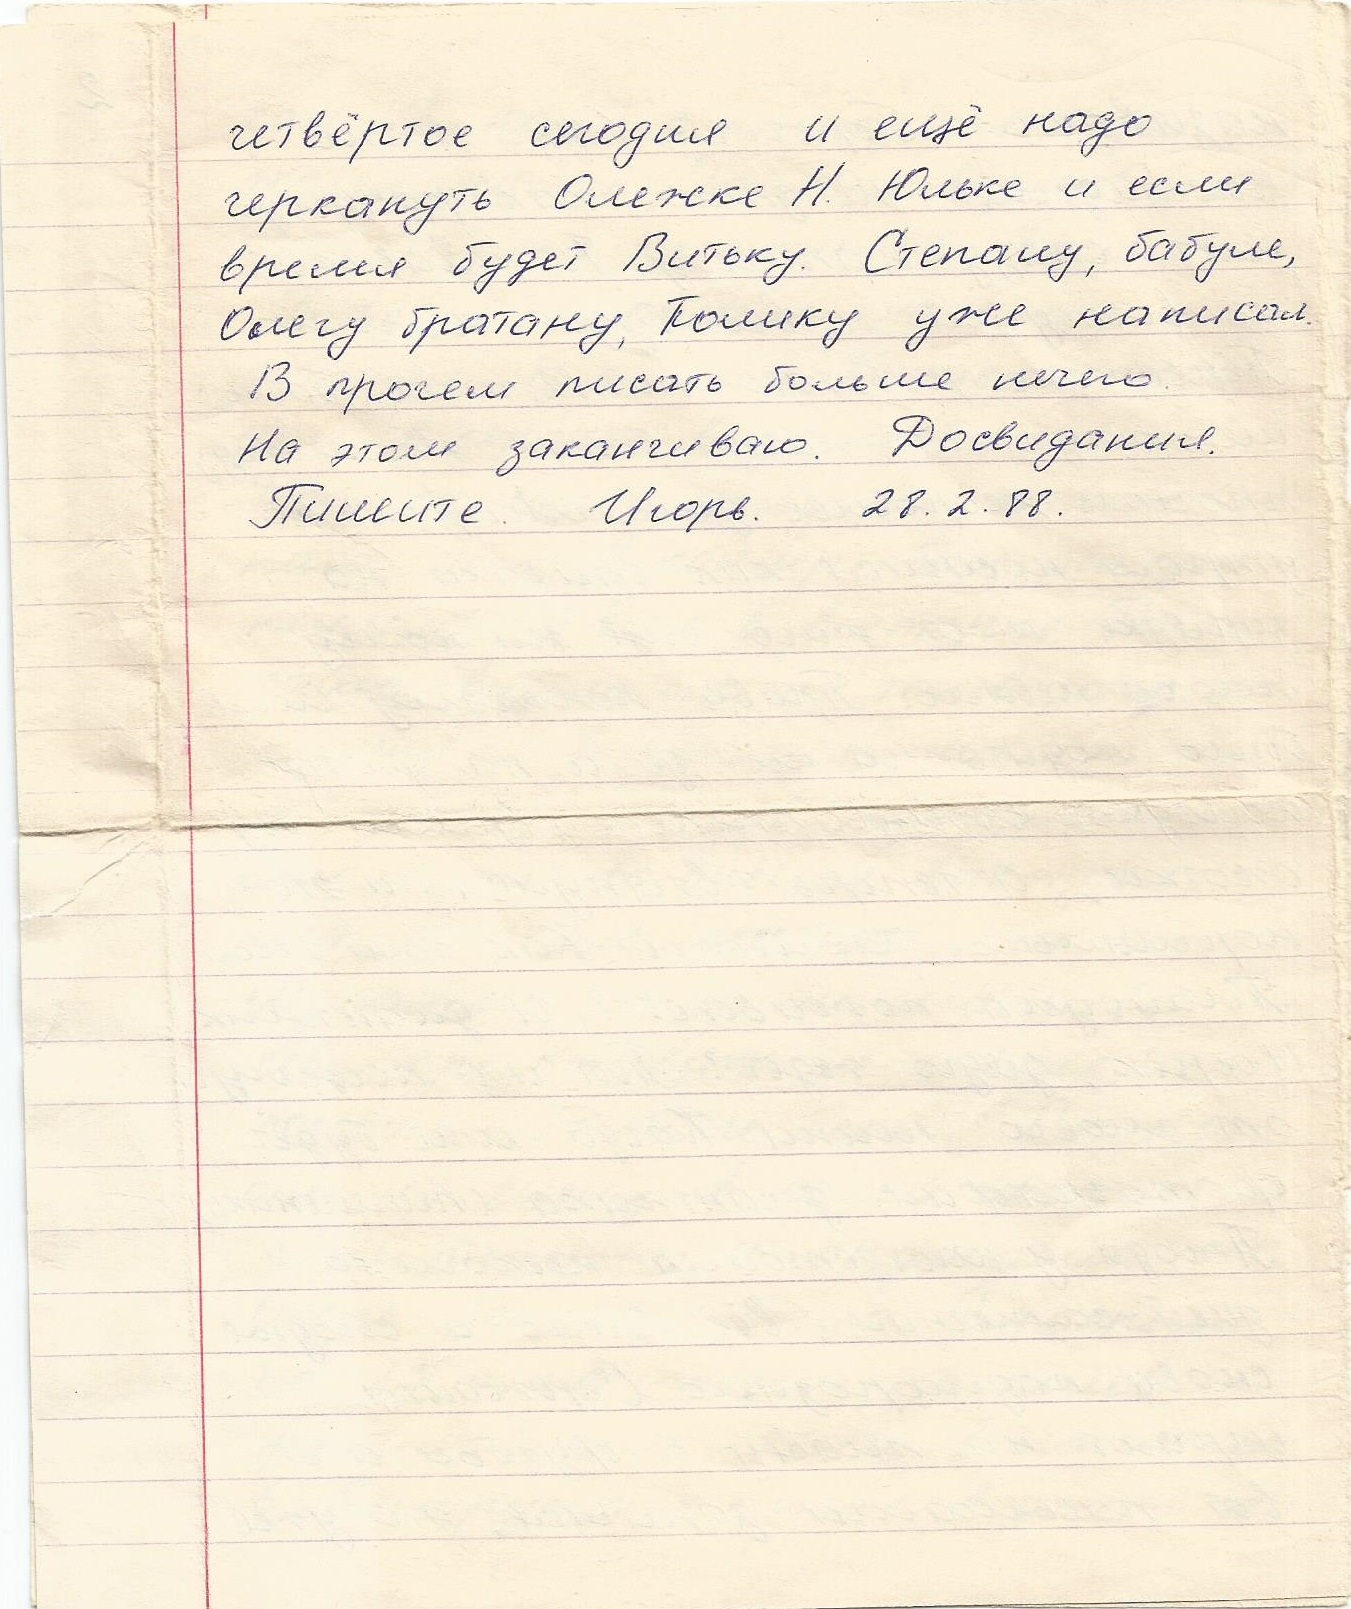 четвёртое сегодня и ещё надо
черкануть Олежке Н. Юльке и если
время будет Витьку. Степану, бабуле,
Олегу братану, Толику уже написал.
В прочем писать больше нечего.
На этом заканчиваю. Досвидания.
Пишите. Игорь. 28.2.88.